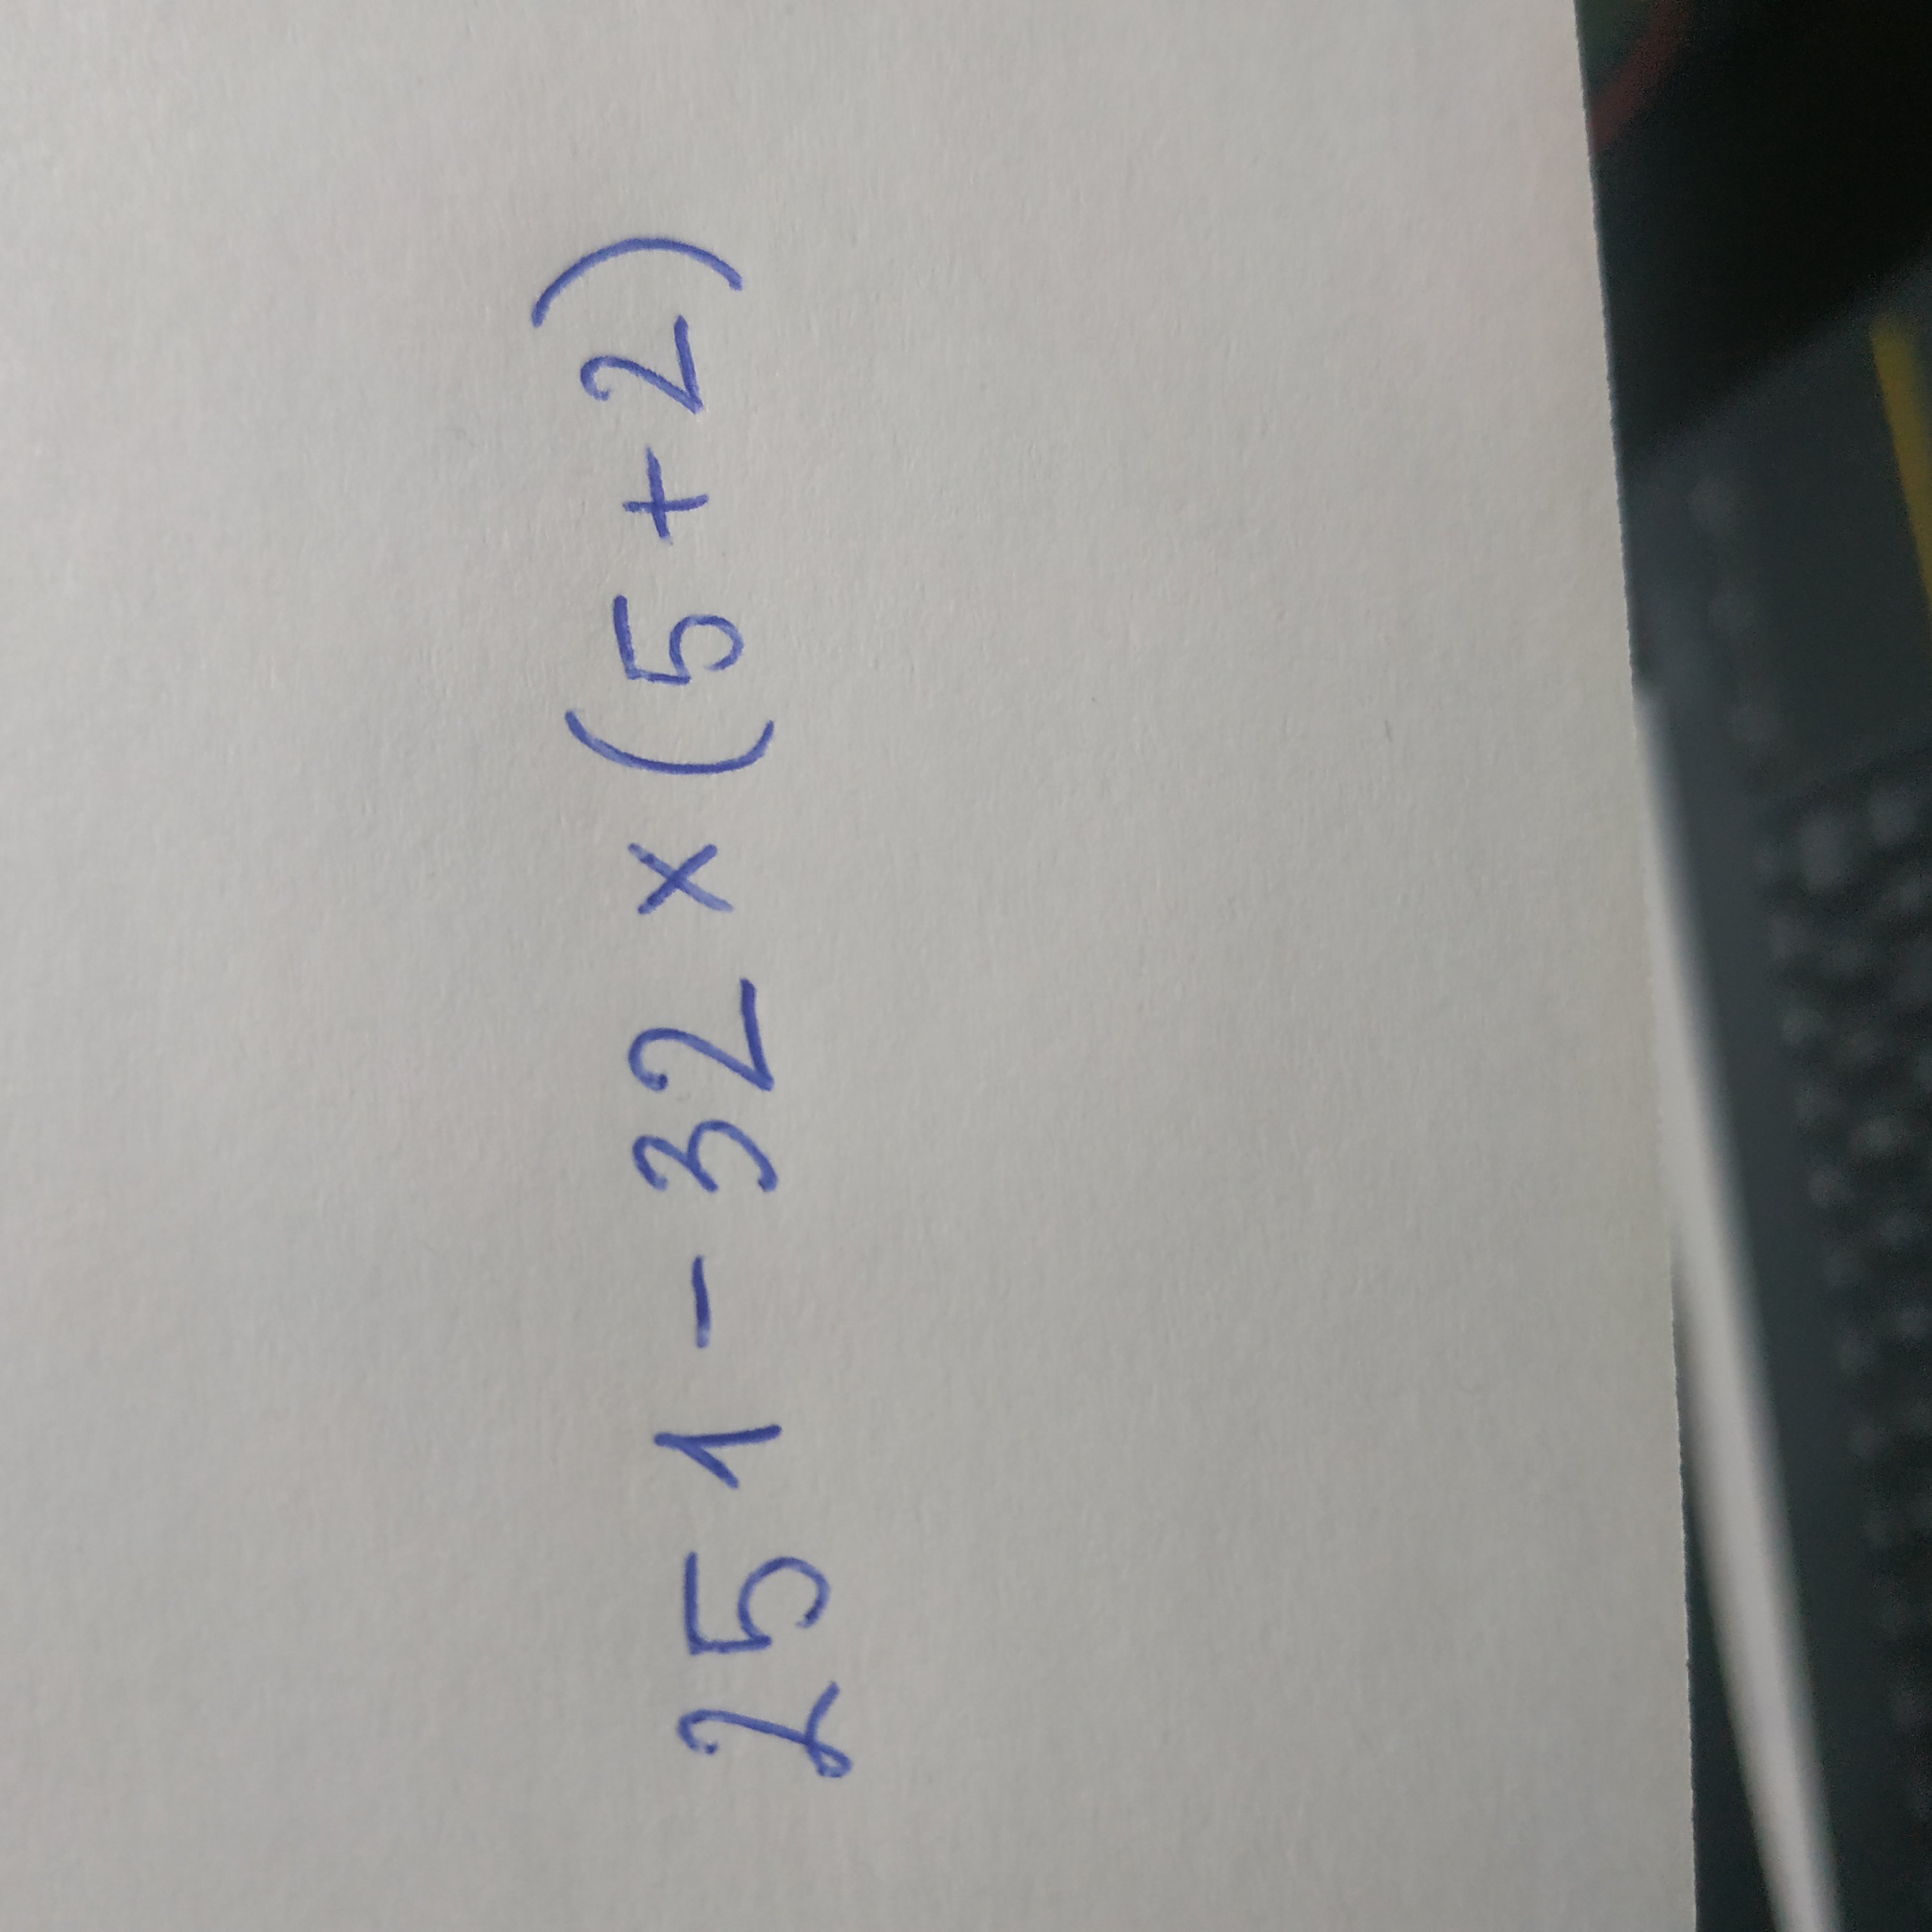 251 - 32 × (5 + 2)